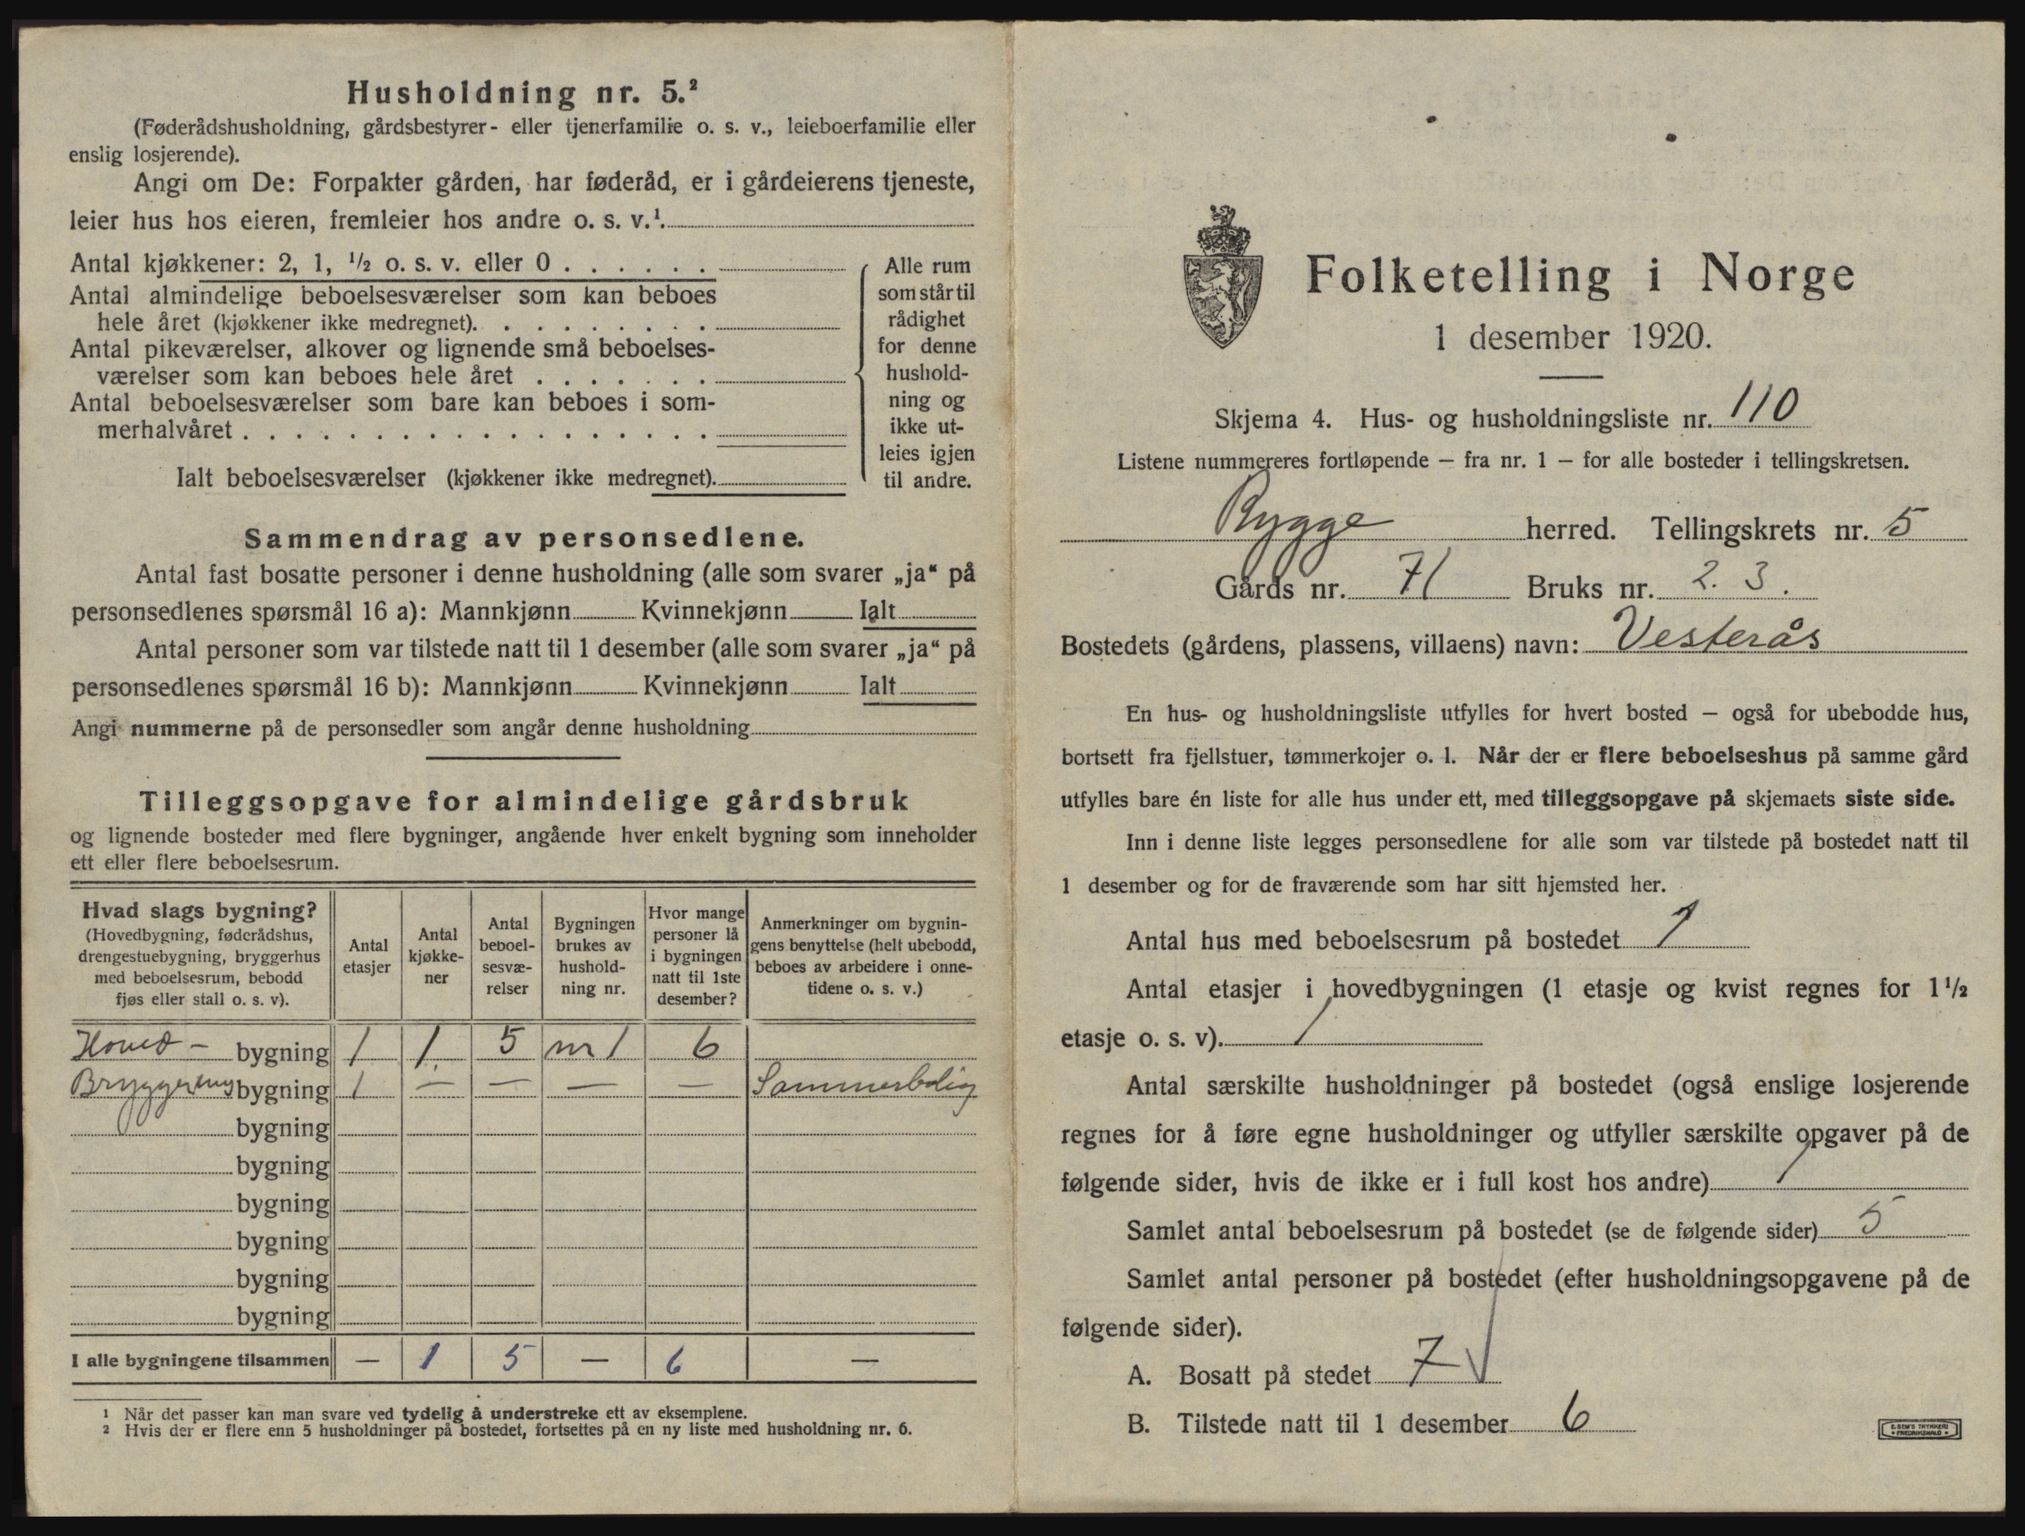 Husholdning nr. 5.²
(Føderådshusholdning, gårdsbestyrer- eller tjenerfamilie o. s. v., leieboerfamilie eller
enslig losjerende).
Angi om De: Forpakter gården, har føderåd, er i gårdeierens tjeneste,
leier hus hos eieren, fremleier hos andre o. s. v.¹.
Antal kjøkkener: 2, 1, ½ o. s. v. eller 0 . . . . . .
Antal almindelige beboelsesværelser som kan beboes
hele året (kjøkkener ikke medregnet). . . . . . . . .
Antal pikeværelser, alkover og lignende små beboelses-
værelser som kan beboes hele året . . . . . . .
Antal beboelsesværelser som bare kan beboes i som-
merhalvåret . . . . . . . . . . . . . . . . . .
Ialt beboelsesværelser (kjøkkener ikke medregnet).
Alle rum
som står til
rådighet
for denne
hushold-
ning og
ikke ut-
leies igjen
til andre.
Sammendrag av personsedlene.
Antal fast bosatte personer i denne husholdning (alle som svarer „ja“ på
personsedlenes spørsmål 16 a): Mannkjønn Kvinnekjønn Ialt
Antal personer som var tilstede natt til 1 desember (alle som svarer „ja“ på
personsedlenes spørsmål 16 b): Mannkjønn Kvinnekjønn Ialt
Angi nummerne på de personsedler som angår denne husholdning
Tilleggsopgave for almindelige gårdsbruk
og lignende bosteder med flere bygninger, angående hver enkelt bygning som inneholder
ett eller flere beboelsesrum.
Hvad slags bygning?
(Hovedbygning, føderådshus,
drengestuebygning, bryggerhus
med beboelsesrum, bebodd
fjøs eller stall o. s. v).
Antal
etasjer
Antal
kjøkke-
ner
Antal
beboel-
sesvæ-
relser
Bygningen
brukes av
hushold-
ning nr.
Hvor mange
personer lå
i bygningen
natt til 1ste
desember?
Anmerkninger om bygnin-
gens benyttelse (helt ubebodd,
beboes av arbeidere i onne-
tidene o. s. v.)
Hoved- bygning 1 1 5 nr 1 6
bygning 1 — — — — Sommerbolig
bygning
bygning
bygning
bygning
bygning
bygning
I alle bygningene tilsammen — 1 5 — 6 —
¹ Når det passer kan man svare ved tydelig å understreke ett av eksemplene.
² Hvis der er flere enn 5 husholdninger på bostedet, fortsettes på en ny liste med husholdning nr. 6.
Folketelling i Norge
1 desember 1920.
Skjema 4. Hus- og husholdningsliste nr. 110
Listene nummereres fortløpende — fra nr. 1 — for alle bosteder i tellingskretsen.
Rygge herred. Tellingskrets nr. 5
Gårds nr. 71 Bruks nr. 2. 3.
Bostedets (gårdens, plassens, villaens) navn: Vesterås
En hus- og husholdningsliste utfylles for hvert bosted — også for ubebodde hus,
bortsett fra fjellstuer, tømmerkojer o. l. Når der er flere beboelseshus på samme gård
utfylles bare én liste for alle hus under ett, med tilleggsopgave på skjemaets siste side.
Inn i denne liste legges personsedlene for alle som var tilstede på bostedet natt til
1 desember og for de fraværende som har sitt hjemsted her.
Antal hus med beboelsesrum på bostedet 1
Antal etasjer i hovedbygningen (1 etasje og kvist regnes for 1½
etasje o. s. v). 1
Antal særskilte husholdninger på bostedet (også enslige losjerende
regnes for å føre egne husholdninger og utfyller særskilte opgaver på de
følgende sider, hvis de ikke er i full kost hos andre) 1
Samlet antal beboelsesrum på bostedet (se de følgende sider) 5
Samlet antal personer på bostedet (efter husholdningsopgavene på de
følgende sider).
A. Bosatt på stedet 7
B. Tilstede natt til 1 desember 6
E. SEM'S TRYKKERI
• FREDRIKSHALD •